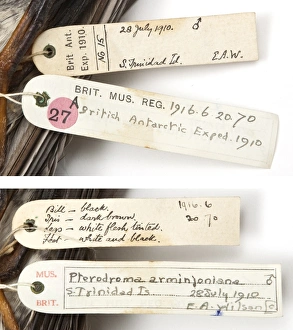 Brit Ant. Exp. 1910.
No 15
28 July 1910. ♂
S. Trinidad Id. E.A.W.
BRIT. MUS. REG. 1916.6 20.70
27
A
British Antarctic Exped. 1910
Bill - black.
Iris - dark brown.
Legs - white flesh tinted.
Feet - white and black.
1916.6
20 70
MUS.
BRIT.
Pterodroma arminjoniana ♂
S Trinidad Is. 28 July 1910
E A Wilson